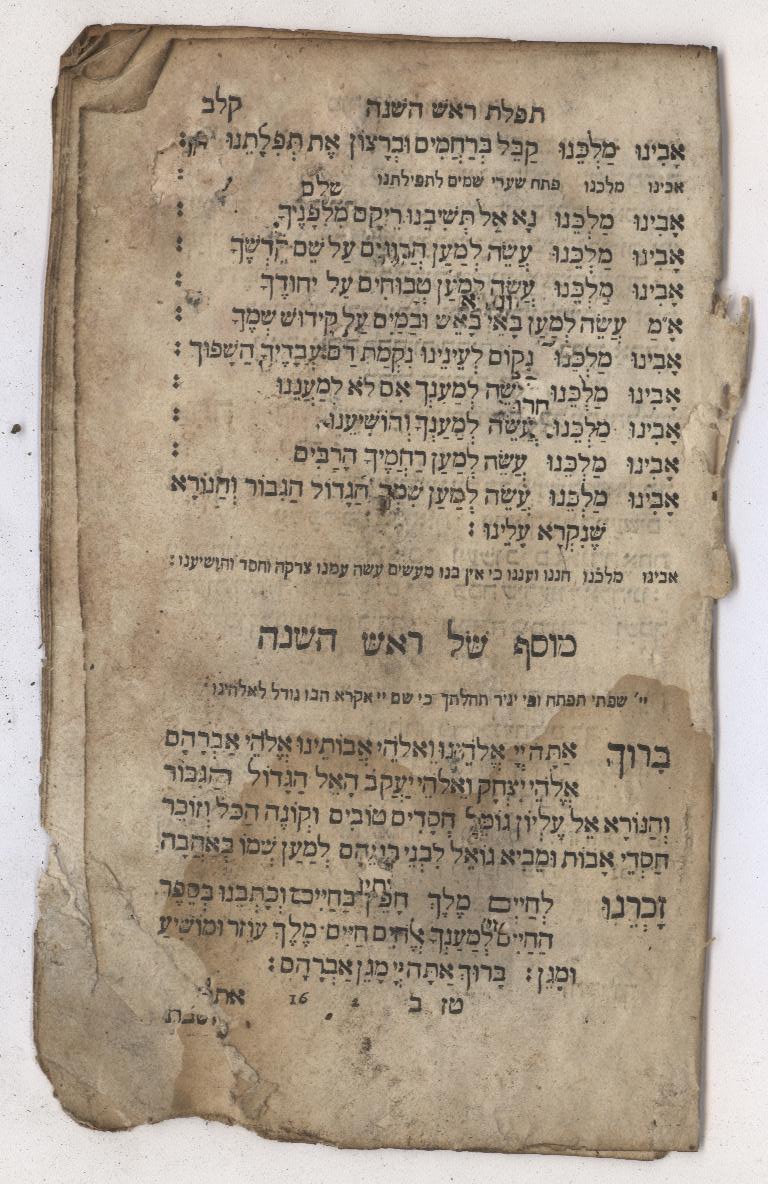 תפלת ראש השנה קלב
אָבִינוּ מַלְכֵּנוּ קַבֵּל בְּרַחֲמִים וּבְרָצוֹן אֶת תְּפִלָּתֵנוּ :
אבינו מלכנו פתח שערי שמים לתפילתנו :
שלם
אָבִינוּ מַלְכֵּנוּ נָא אַל תְּשִׁיבֵנוּ רֵיקָם מִלְּפָנֶיךָ :
אָבִינוּ מַלְכֵּנוּ עֲשֵׂה לְמַעַן הֲרוּגִים עַל שֵׁם קָדְשֶׁךָ :
אָבִינוּ מַלְכֵּנוּ עֲשֵׂה לְמַעַן טְבוּחִים עַל יִחוּדֶךָ :
א״מ עֲשֵׂה לְמַעַן בָּאֵי בָאֵשׁ וּבַמַּיִם עַל קִידּוּשׁ שְׁמֶךָ :
אָבִינוּ מַלְכֵּנוּ נְקוֹם לְעֵינֵינוּ נִקְמַת דַּם עֲבָדֶיךָ הַשָּׁפוּךְ :
אָבִינוּ מַלְכֵּנוּ עֲשֵׂה לְמַעַנְךָ אִם לֹא לְמַעֲנֵנוּ :
אָבִינוּ מַלְכֵּנוּ עֲשֵׂה לְמַעַנְךָ וְהוֹשִׁיעֵנוּ :
אָבִינוּ מַלְכֵּנוּ עֲשֵׂה לְמַעַן רַחֲמֶיךָ הָרַבִּים :
אָבִינוּ מַלְכֵּנוּ עֲשֵׂה לְמַעַן שִׁמְךָ הַגָּדוֹל הַגִּבּוֹר וְהַנּוֹרָא
שֶׁנִּקְרָא עָלֵינוּ :
אבינו מלכנו חננו ועננו כי אין בנו מעשים עשה עמנו צדקה וחסד והושיענו :
מוסף של ראש השנה
יי׳ שפתי תפתח ופי יגיד תהלתך כי שם יי אקרא הבו גודל לאלהינו :
בָּרוּךְ אַתָּה יְיָ אֱלֹהֵינוּ וֵאלֹהֵי אֲבוֹתֵינוּ אֱלֹהֵי אַבְרָהָם
אֱלֹהֵי יִצְחָק וֵאלֹהֵי יַעֲקֹב הָאֵל הַגָּדוֹל הַגִּבּוֹר
וְהַנּוֹרָא אֵל עֶלְיוֹן גּוֹמֵל חֲסָדִים טוֹבִים וְקוֹנֶה הַכֹּל וְזוֹכֵר
חַסְדֵי אָבוֹת וּמֵבִיא גוֹאֵל לִבְנֵי בְנֵיהֶם לְמַעַן שְׁמוֹ בְּאַהֲבָה
זָכְרֵנוּ לְחַיִּים מֶלֶךְ חָפֵץ בַּחַיִּים וְכָתְבֵנוּ בְּסֵפֶר
הַחַיִּים לְמַעַנְךָ אֱלֹהִים חַיִּים מֶלֶךְ עוֹזֵר וּמוֹשִׁיעַ
וּמָגֵן : בָּרוּךְ אַתָּה יְיָ מָגֵן אַבְרָהָם :
טז ב 2 16 אתה